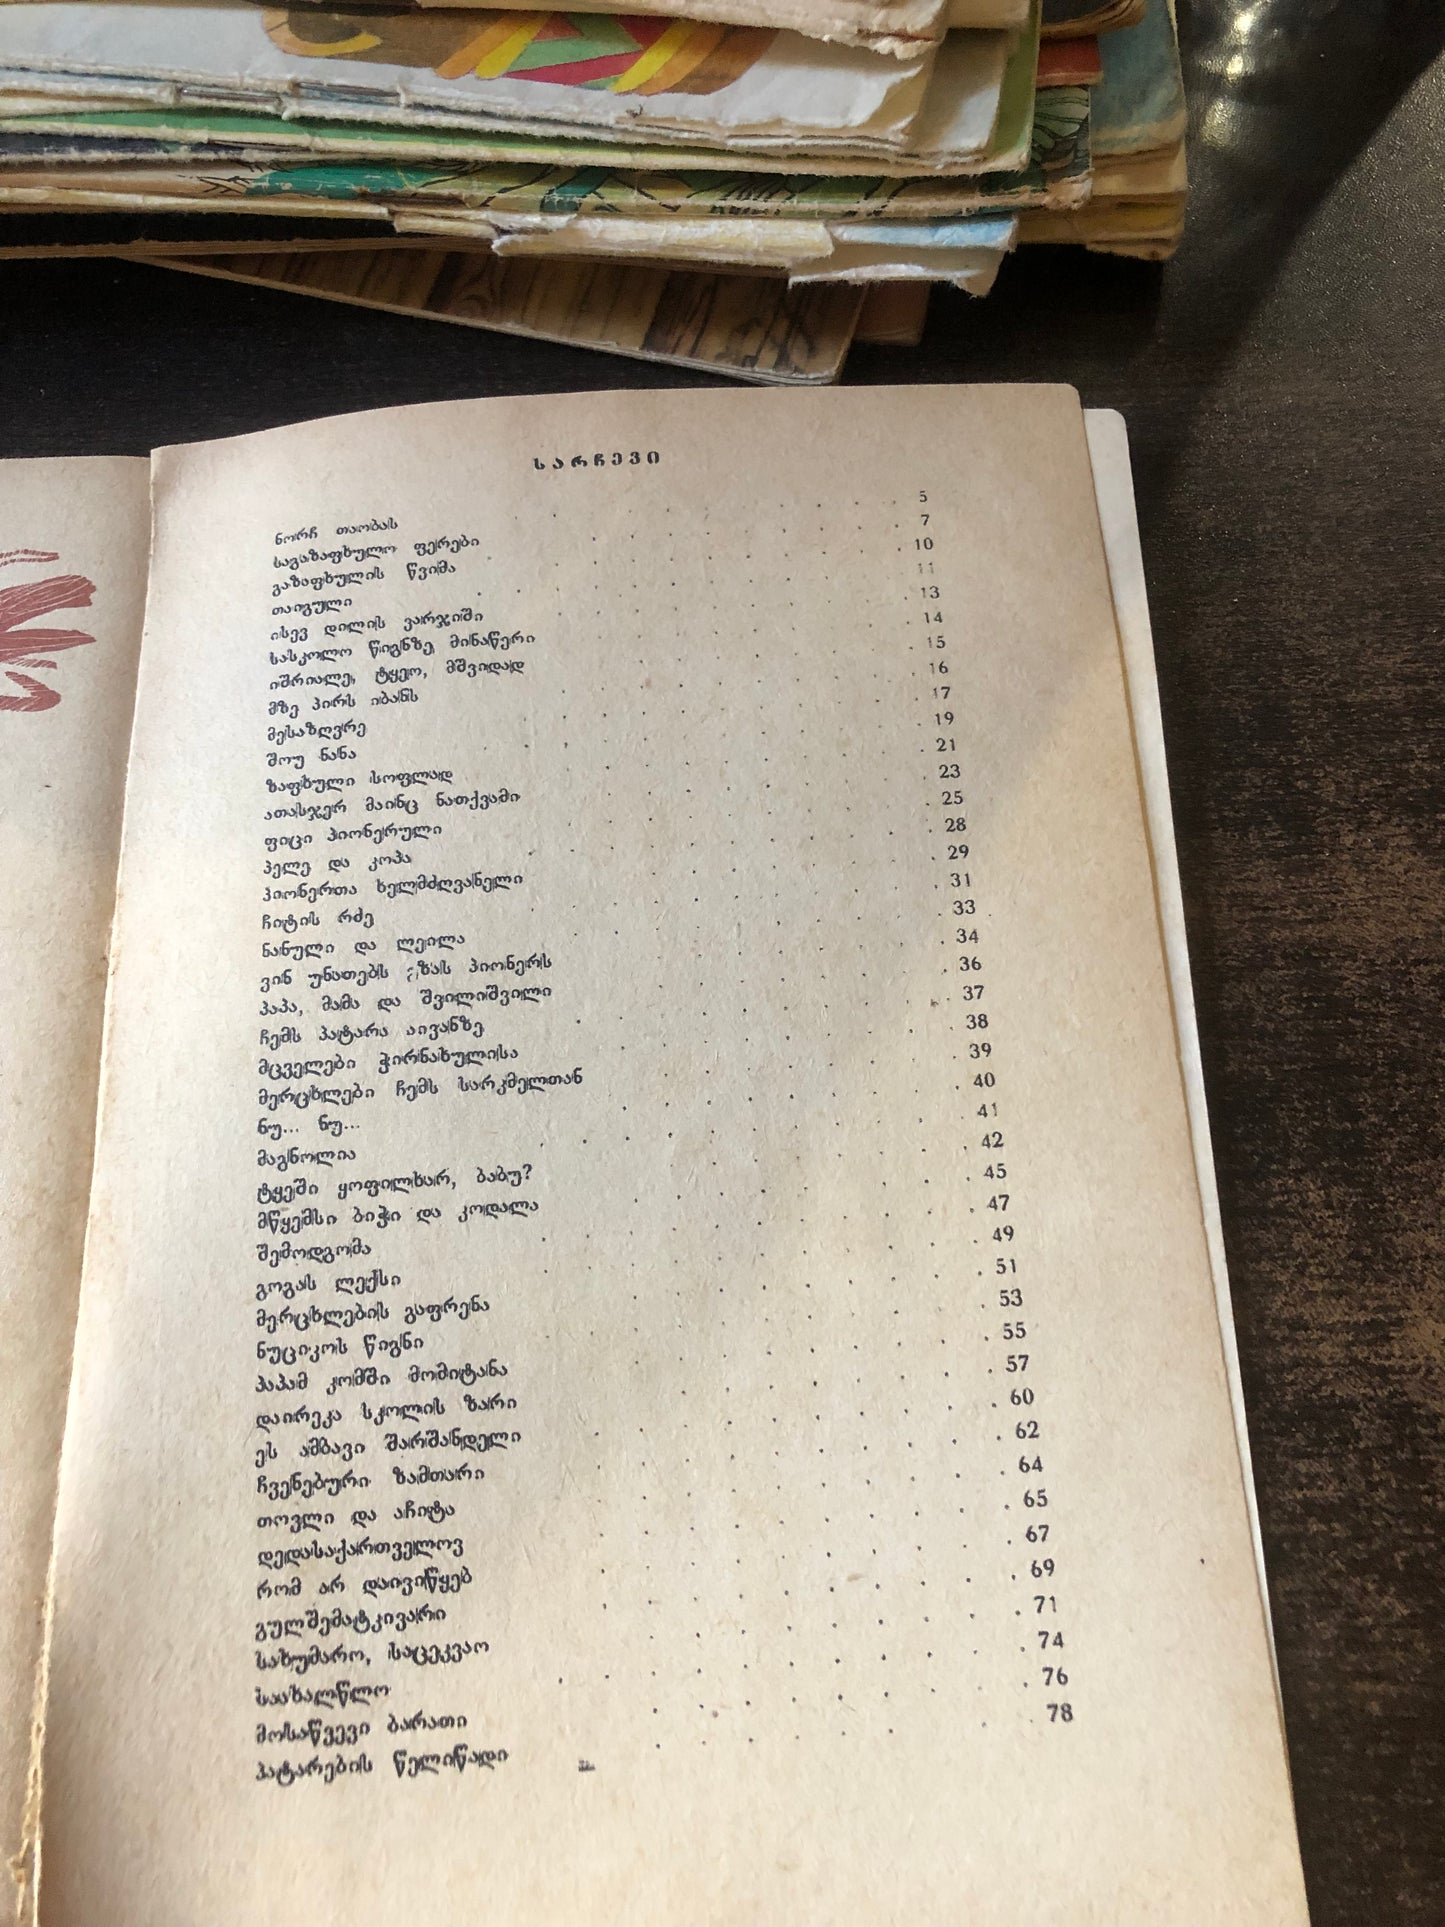 სარჩევი
ნორჩ თაობას . . . . . . . 5
საგაზაფხულო ფერები . . . . . . . 7
გაზაფხულის წვიმა . . . . . . . 10
თაიგული . . . . . . . 11
ისევ დილის ვარჯიში . . . . . . . 13
სასკოლო წიგნზე მინაწერი . . . . . . . 14
იშრიალე, ტყეო, მშვიდად . . . . . . . 15
მზე პირს იბანს . . . . . . . 16
მესაზღვრე . . . . . . . 17
შოუ ნანა . . . . . . . 19
ზაფხული სოფლად . . . . . . . 21
ათასჯერ მაინც ნათქვამი . . . . . . . 23
ფიცი პიონერული . . . . . . . 25
პელე და კოპა . . . . . . . 28
პიონერთა ხელმძღვანელი . . . . . . . 29
ჩიტის რძე . . . . . . . 31
ნანული და ლეილა . . . . . . . 33
ვინ უნათებს გზას პიონერს . . . . . . . 34
პაპა, მამა და შვილიშვილი . . . . . . . 36
ჩემს პატარა აივანზე . . . . . . . 37
მცველები ჭირნახულისა . . . . . . . 38
მერცხლები ჩემს სარკმელთან . . . . . . . 39
ნუ... ნუ... . . . . . . . 40
მაგნოლია . . . . . . . 41
ტყეში ყოფილხარ, ბაბუ? . . . . . . . 42
მწყემსი ბიჭი და კოდალა . . . . . . . 45
შემოდგომა . . . . . . . 47
გოგას ლექსი . . . . . . . 49
მერცხლების გაფრენა . . . . . . . 51
ნუციკოს წიგნი . . . . . . . 53
პაპამ კომში მომიტანა . . . . . . . 55
დაირეკა სკოლის ზარი . . . . . . . 57
ეს ამბავი შარშანდელი . . . . . . . 60
ჩვენებური ზამთარი . . . . . . . 62
თოვლი და აჩიტა . . . . . . . 64
დედასაქართველოვ . . . . . . . 65
რომ არ დაივიწყებ . . . . . . . 67
გულშემატკივარი . . . . . . . 69
სახუმარო, საცეკვაო . . . . . . . 71
საახალწლო . . . . . . . 74
მოსაწვევი ბარათი . . . . . . . 76
პატარების წელიწადი . . . . . . . 78